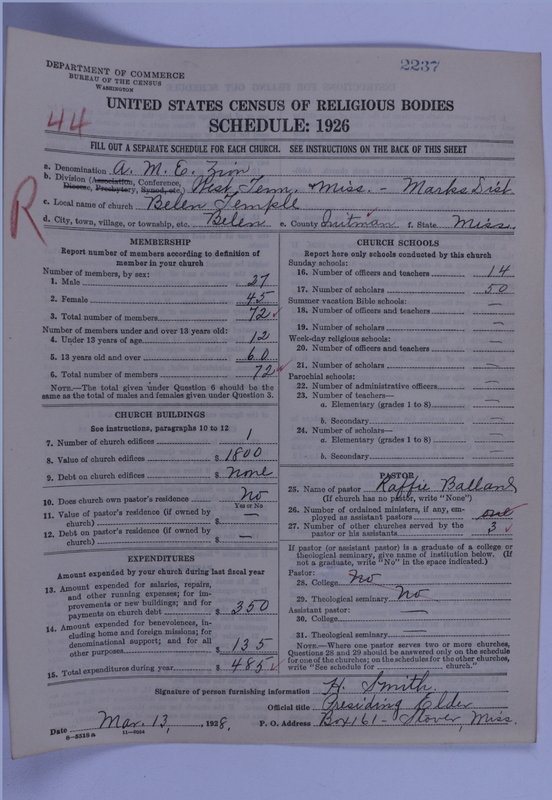 2237
DEPARTMENT OF COMMERCE
BUREAU OF THE CENSUS
WASHINGTON
44
UNITED STATES CENSUS OF RELIGIOUS BODIES
SCHEDULE: 1926
FILL OUT A SEPARATE SCHEDULE FOR EACH CHURCH. SEE INSTRUCTIONS ON THE BACK OF THIS SHEET
R
a. Denomination A. M. E. Zion
b. Division (Association, Conference, Diocese, Presbytery, Synod, etc.) West Tenn. & Miss. - Marks Dist
c. Local name of church Belen Temple
d. City, town, village, or township, etc. Belen e. County Quitman f. State Miss.
MEMBERSHIP
Report number of members according to definition of
member in your church
Number of members, by sex:
1. Male 27
2. Female 45
3. Total number of members 72 ✓
Number of members under and over 13 years old:
4. Under 13 years of age 12
5. 13 years old and over 60
6. Total number of members 72 ✓
NOTE.—The total given under Question 6 should be the
same as the total of males and females given under Question 3.
CHURCH BUILDINGS
See instructions, paragraphs 10 to 12
7. Number of church edifices 1
8. Value of church edifices $ 1800
9. Debt on church edifices $ none
10. Does church own pastor's residence No
Yes or No
11. Value of pastor's residence (if owned by
church) $ —
12. Debt on pastor's residence (if owned by
church) $ —
EXPENDITURES
Amount expended by your church during last fiscal year
13. Amount expended for salaries, repairs,
and other running expenses; for im-
provements or new buildings; and for
payments on church debt $ 350
14. Amount expended for benevolences, in-
cluding home and foreign missions; for
denominational support; and for all
other purposes $ 135
15. Total expenditures during year $ 485 ✓
CHURCH SCHOOLS
Report here only schools conducted by this church
Sunday schools:
16. Number of officers and teachers 14
17. Number of scholars 50
Summer vacation Bible schools:
18. Number of officers and teachers —
19. Number of scholars —
Week-day religious schools:
20. Number of officers and teachers —
21. Number of scholars —
Parochial schools:
22. Number of administrative officers —
23. Number of teachers—
a. Elementary (grades 1 to 8) —
b. Secondary —
24. Number of scholars—
a. Elementary (grades 1 to 8) —
b. Secondary —
PASTOR
25. Name of pastor Raffie Balland
(If church has no pastor, write "None")
26. Number of ordained ministers, if any, em-
ployed as assistant pastors one
27. Number of other churches served by the
pastor or his assistants 3 ✓
If pastor (or assistant pastor) is a graduate of a college or
theological seminary, give name of institution below. (If
not a graduate, write "No" in the space indicated.)
Pastor:
28. College No
29. Theological seminary No
Assistant pastor:
30. College —
31. Theological seminary —
NOTE.—Where one pastor serves two or more churches,
Questions 28 and 29 should be answered only on the schedule
for one of the churches; on the schedules for the other churches,
write "See schedule for church."
Signature of person furnishing information H. Smith
Official title Presiding Elder
Date Mar. 13, 1928. P. O. Address Box 161 - Slover, Miss.
8-5518a 11-9664